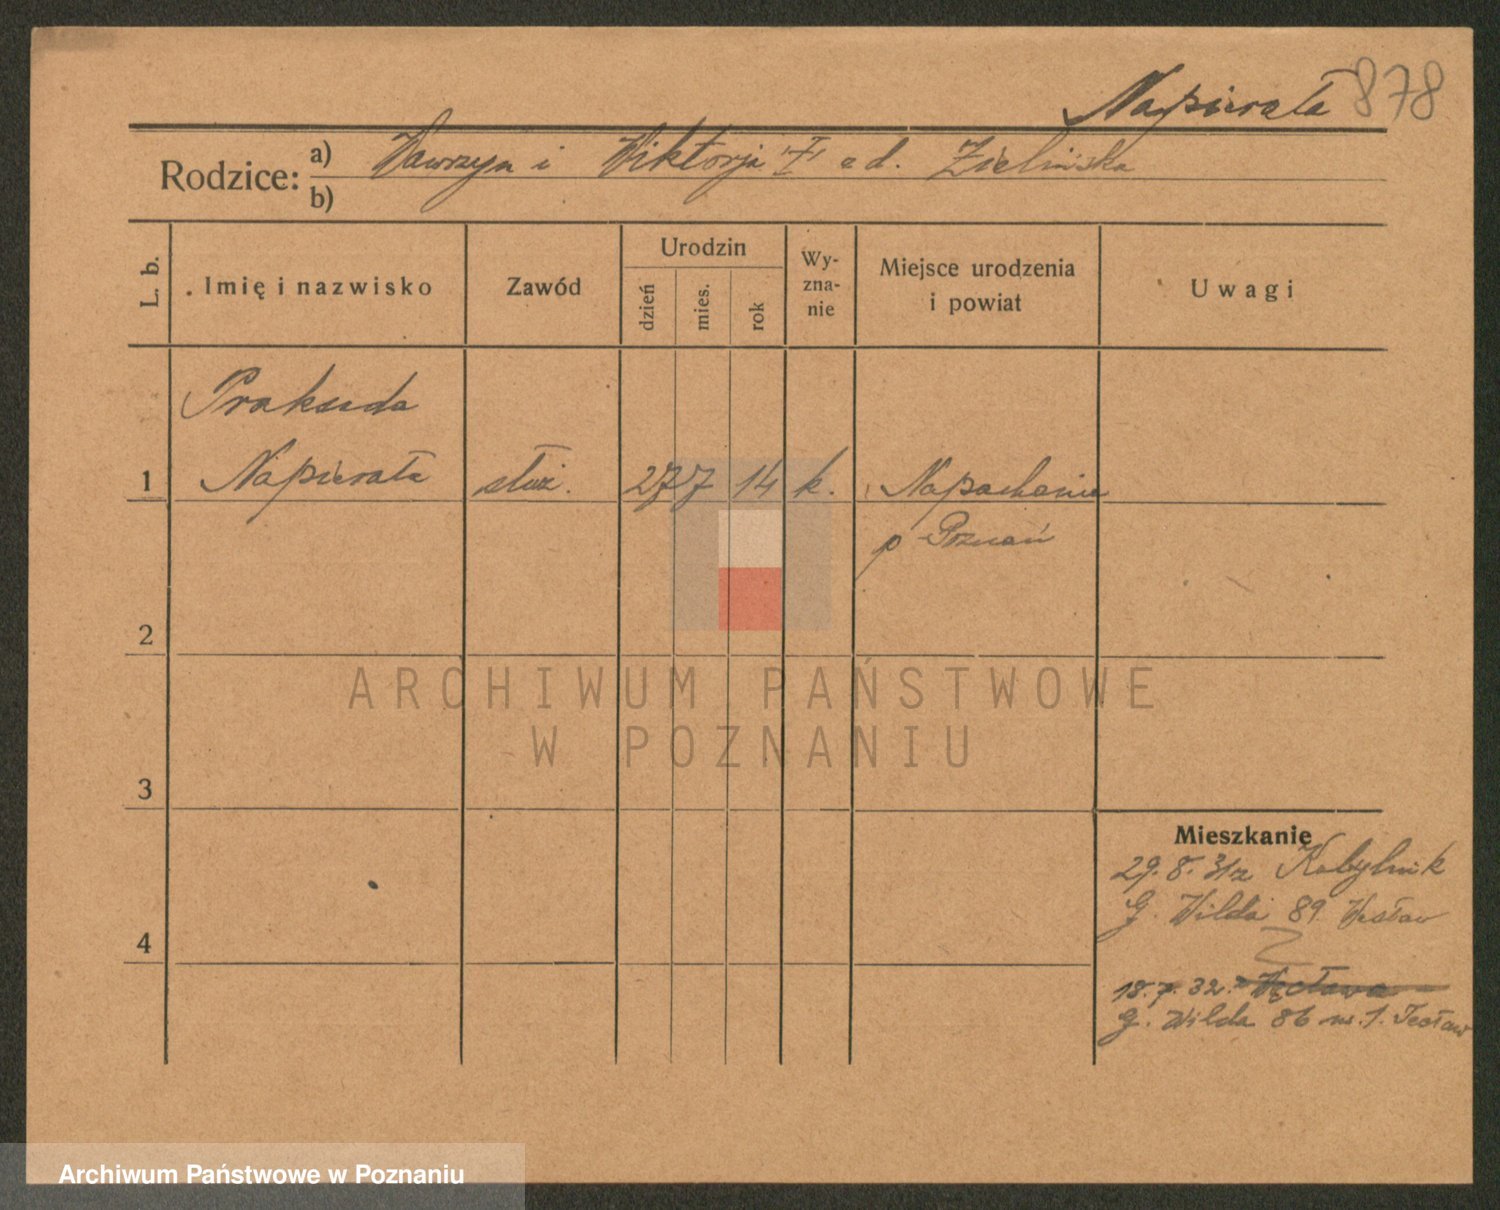 Napierała 878
Rodzice: a) Wawrzyn i Wiktorja z d. Zielińska
b)
L. b.
Imię i nazwisko
Zawód
Urodzin
dzień
mies.
rok
Wy-
zna-
nie
Miejsce urodzenia
i powiat
Uwagi
Prakseda
1 Napierała służ. 27 7 14 k. Napachanie
p Poznań
2
3
4
Mieszkanie
29. 8. 31 z Kobylnik
G. Wilda 89
18. 7. 32.
G. Wilda 86 m. 1.
ARCHIWUM PAŃSTWOWE
W POZNANIU
Archiwum Państwowe w Poznaniu